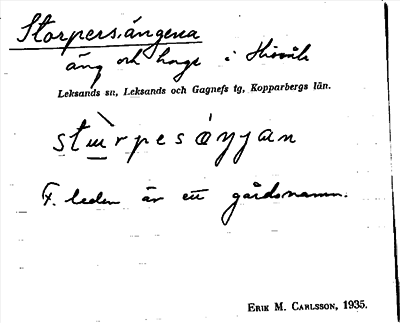 Storpersängena
äng och hage i Hisvåla
Leksands sn, Leksands och Gagnefs tg, Kopparbergs län.
F. leden är ett gårdsnamn.
ERIK M. CARLSSON, 1935.